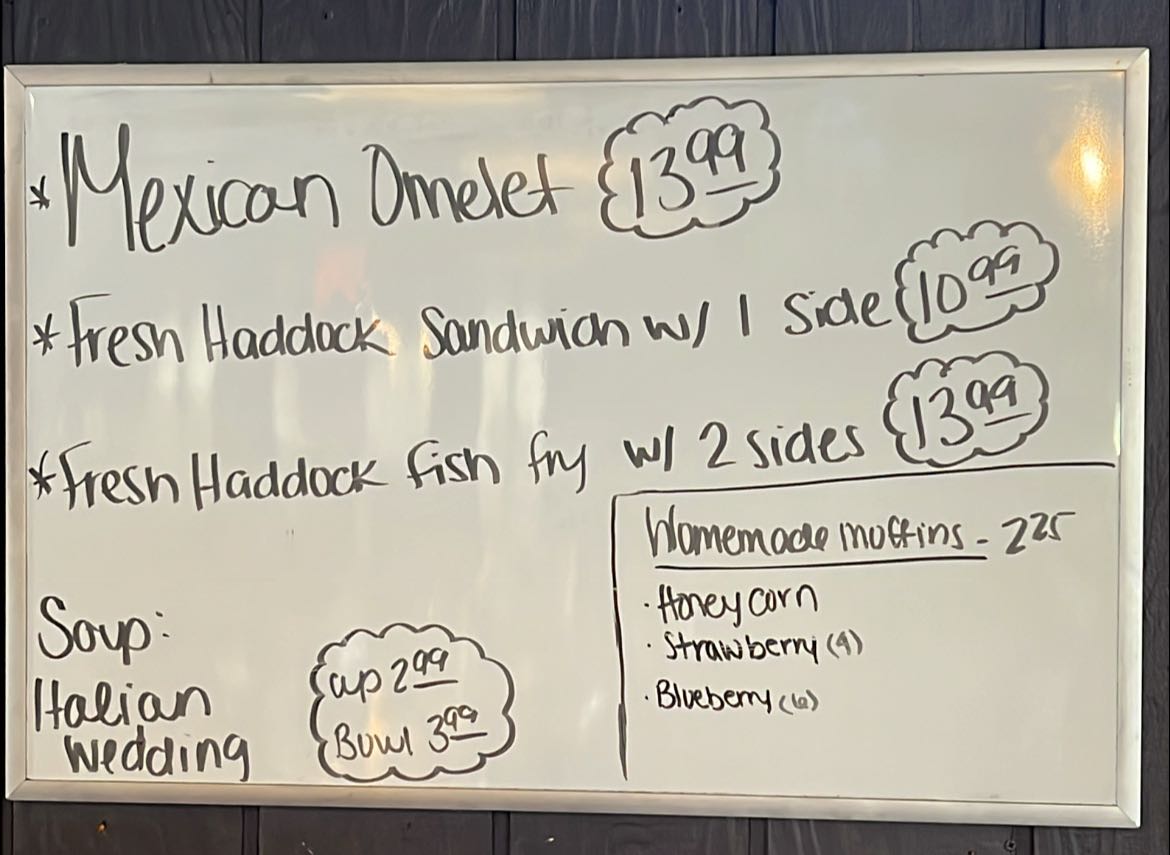 * Mexican Omelet 13 99
* Fresh Haddock Sandwich w/ 1 side 10 99
* Fresh Haddock fish fry w/ 2 sides 13 99
Soup:
Italian
wedding
cup 2 99
Bowl 3 99
Homemade muffins - 2 25
· Honey corn
· Strawberry (4)
· Blueberry (6)